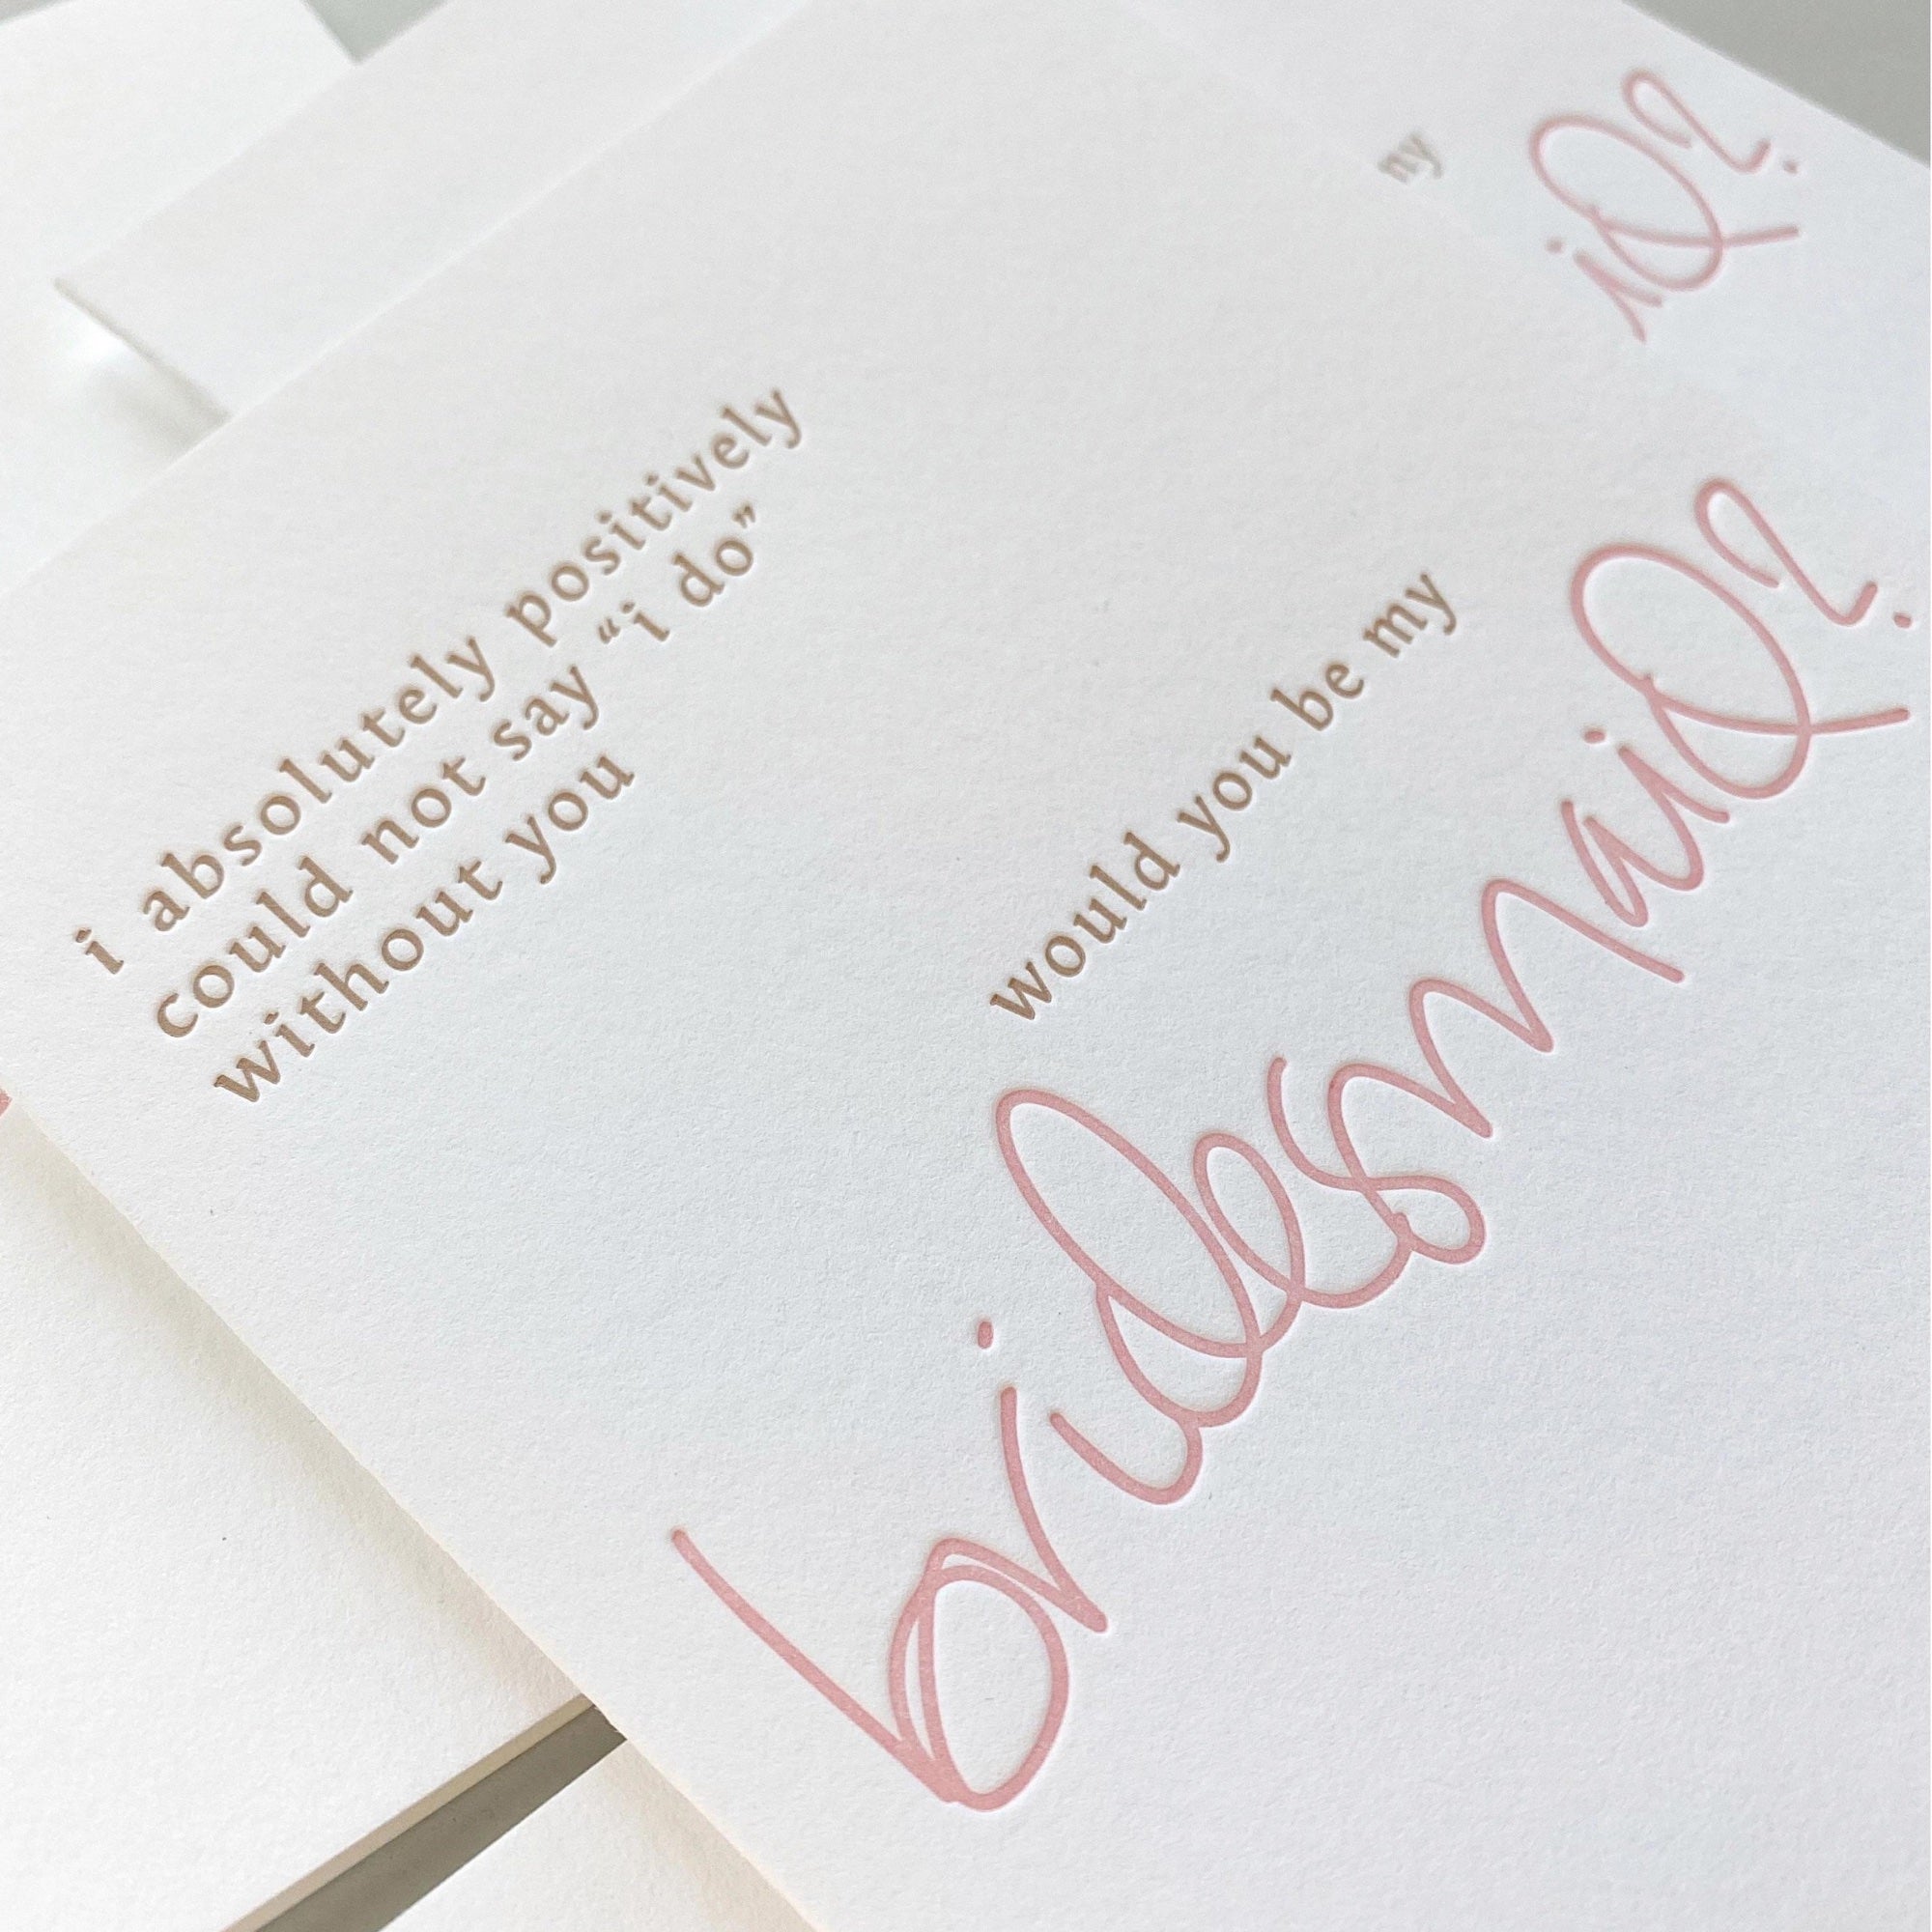 i absolutely positively
could not say “i do”
without you
would you be my
bridesmaid?